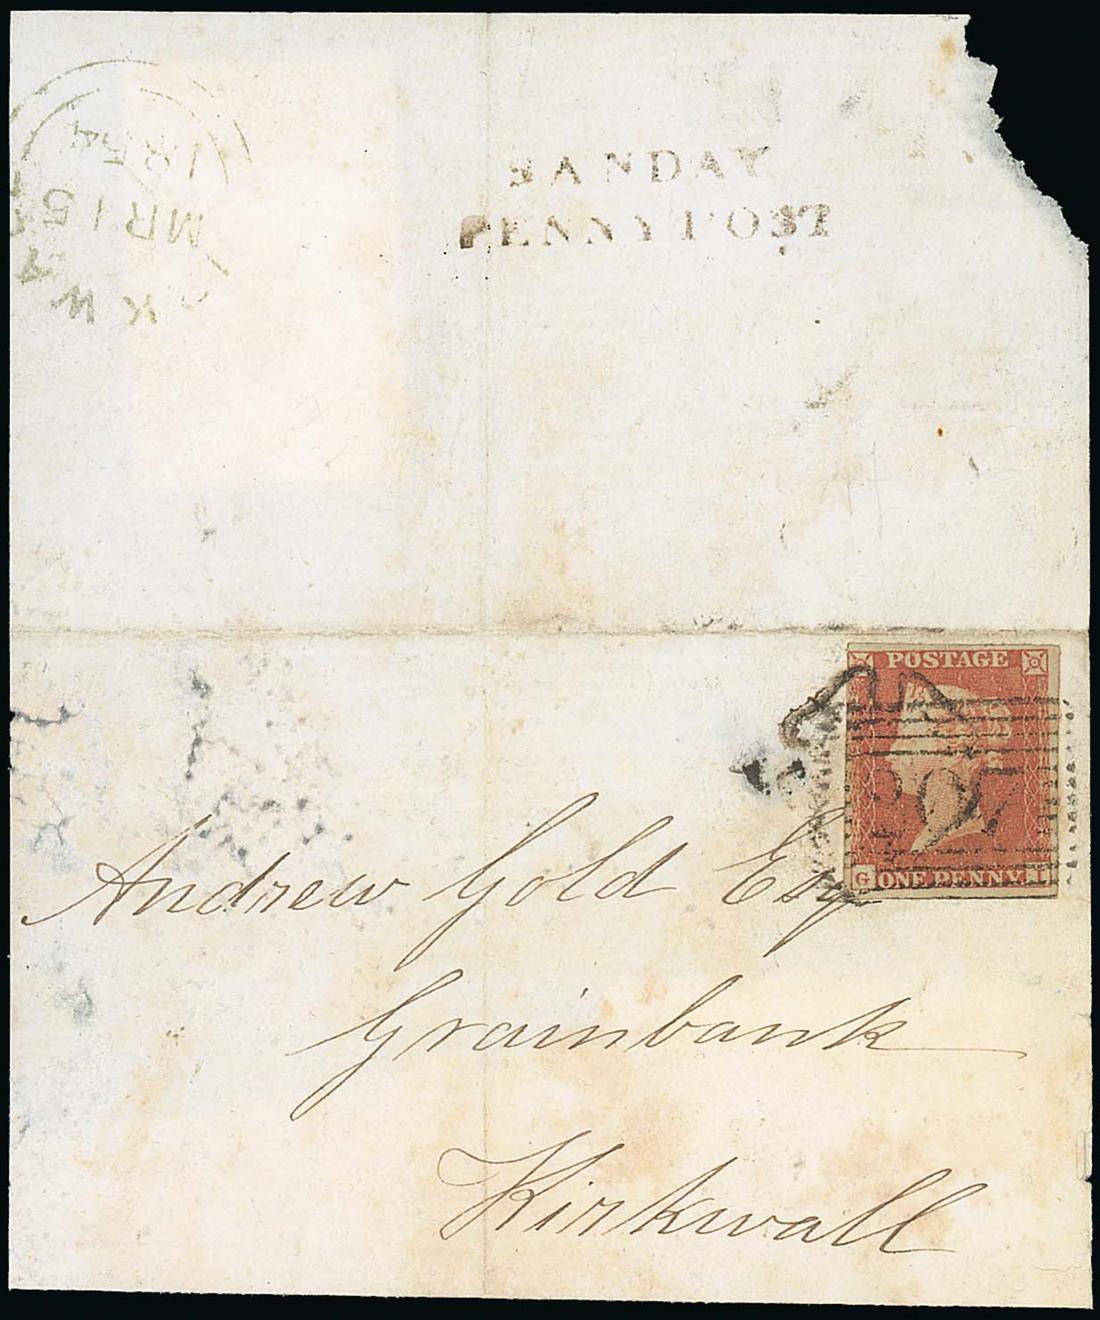 SANDAY
PENNY POST
1854
MR 15
KW
POSTAGE
207
G ONE PENNY I
Andrew Gold Esq
Grainbank
Kirkwall